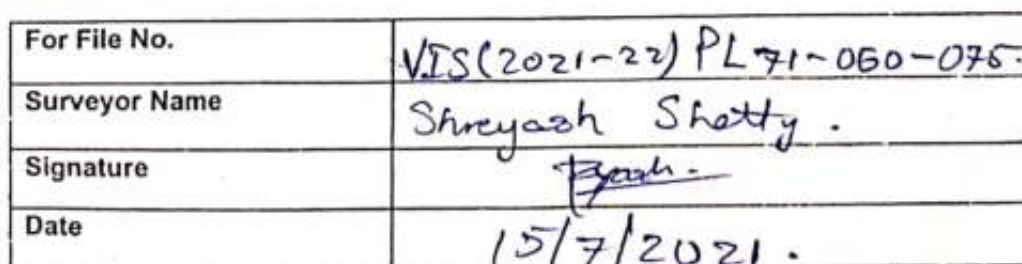 For File No. VIS(2021-22) PL71-060-075.
Surveyor Name Shreyash Shetty.
Signature
Date 15/7/2021.